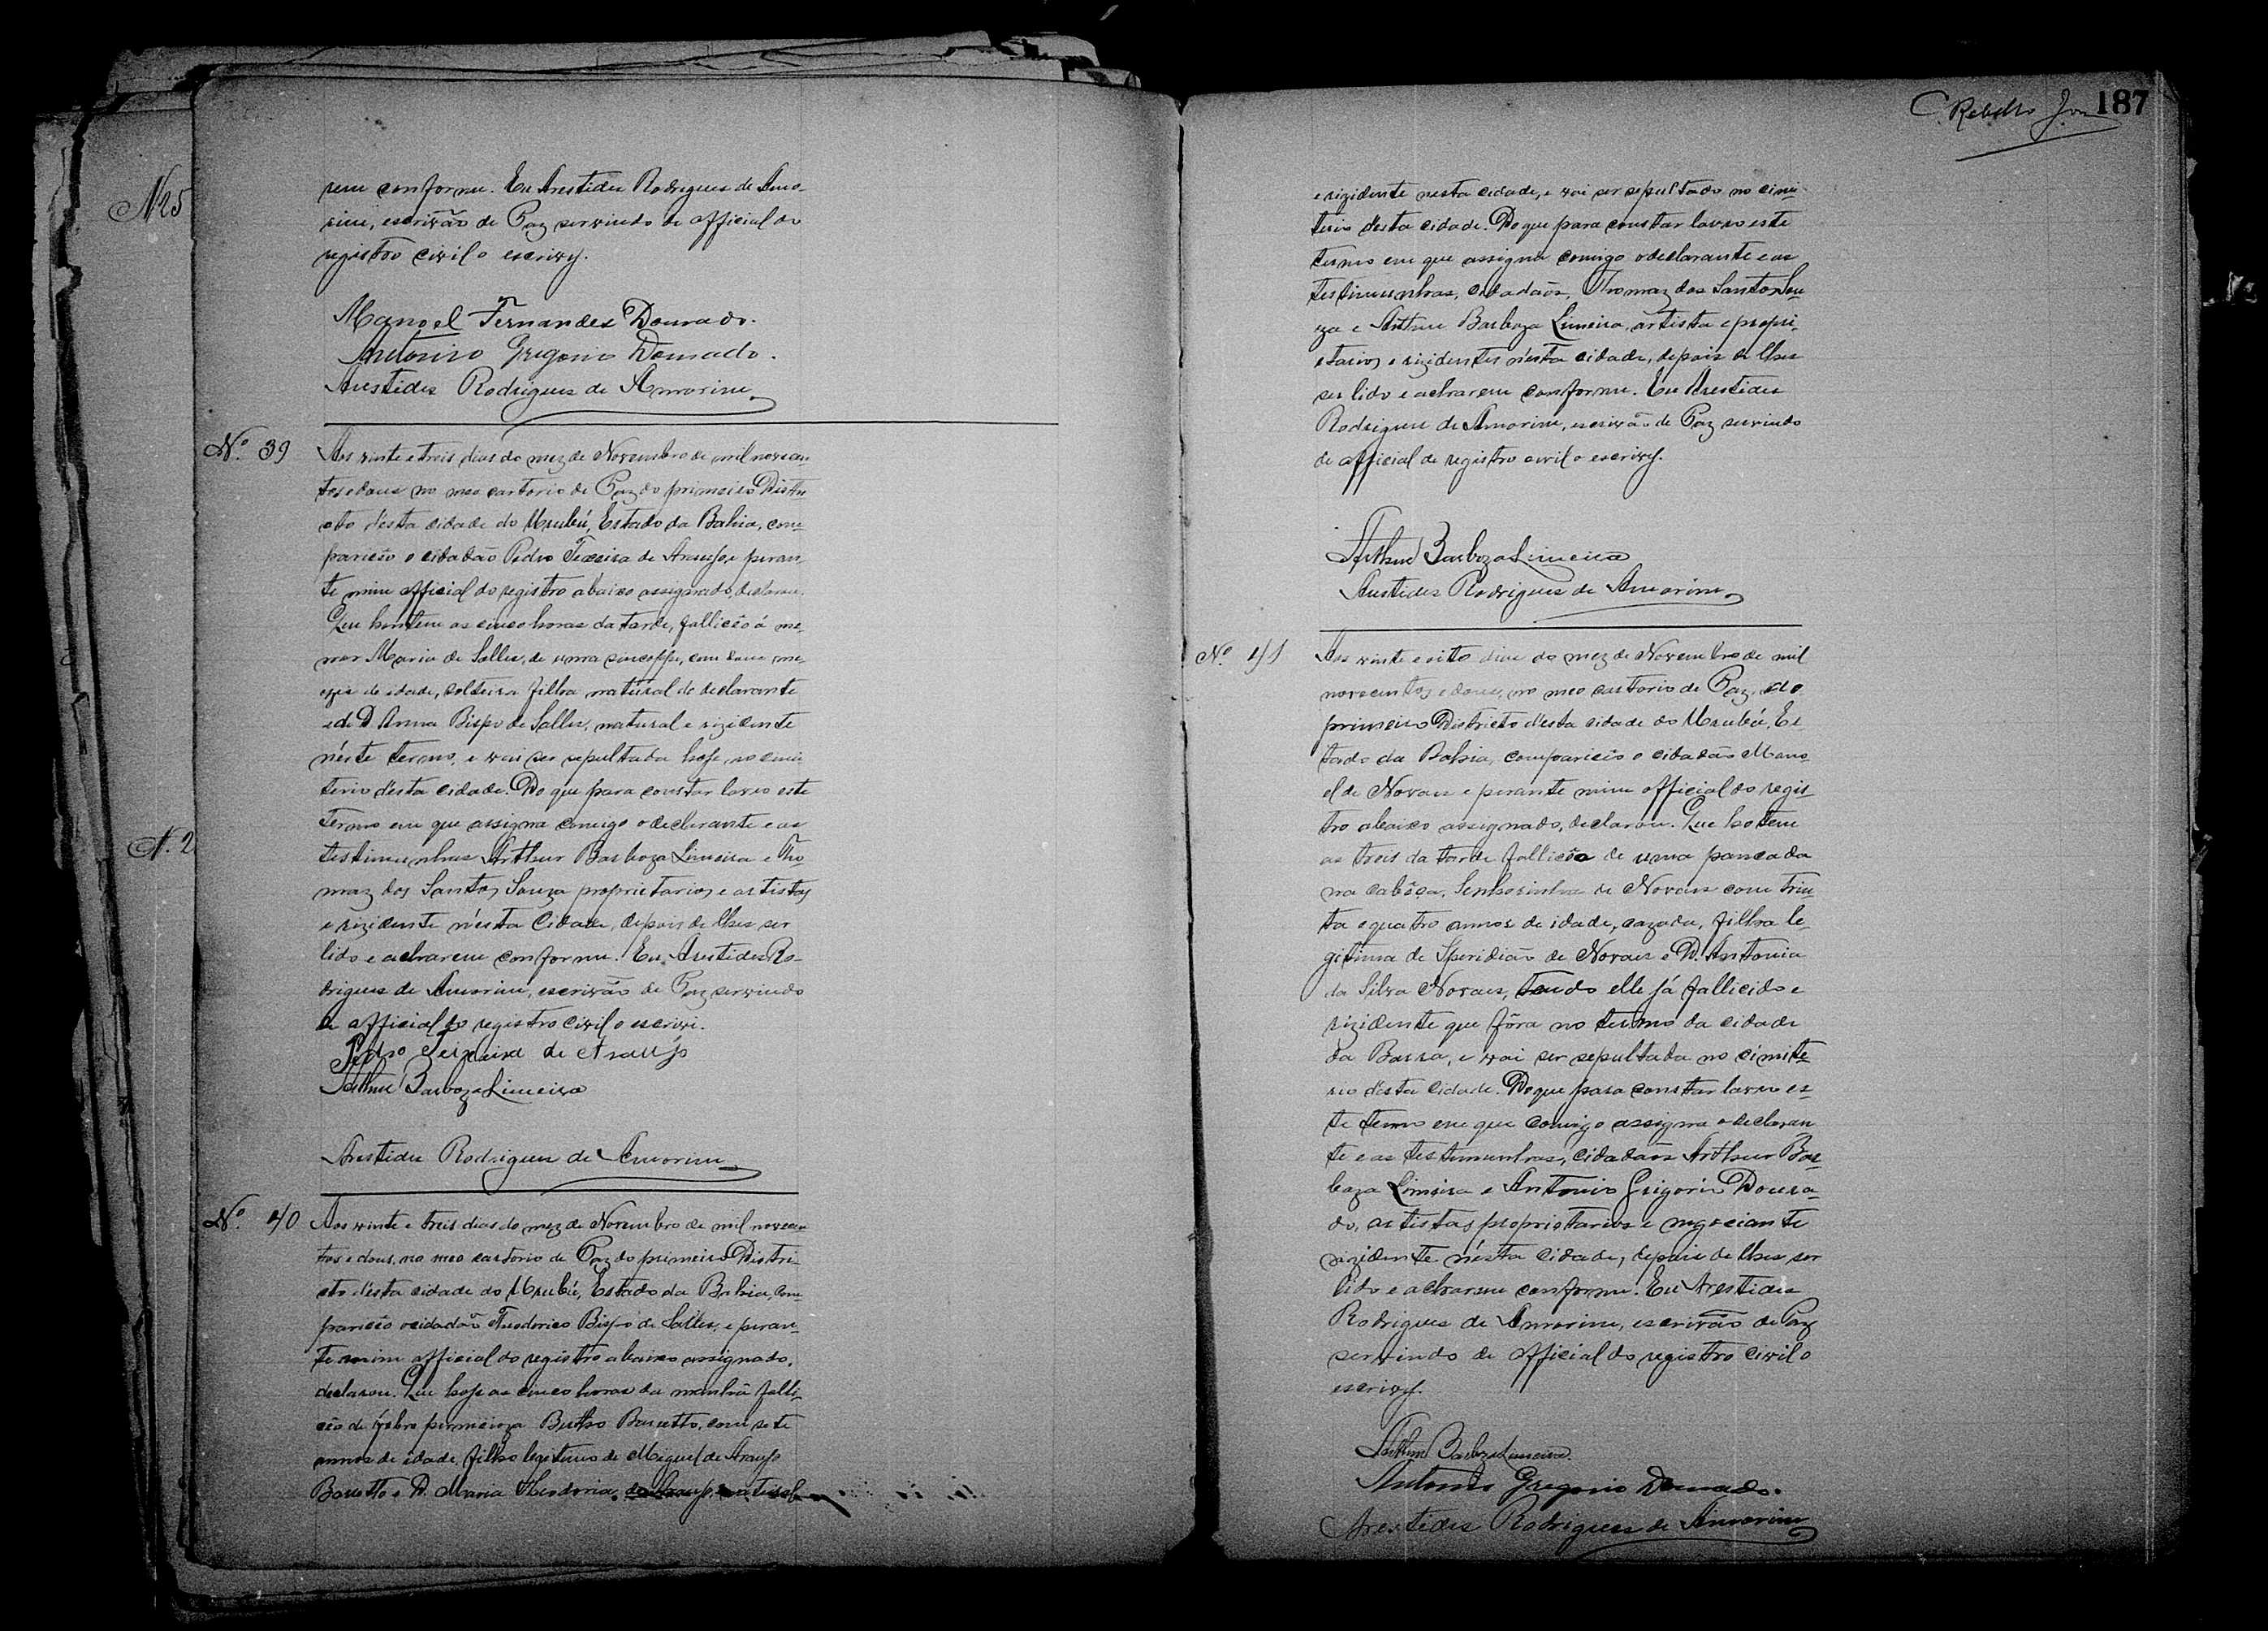 Nº 25
N. 2
rem conforme. Eu Arestides Rodrigues de Amo-
rim, escrivão de Paz servindo de official do
registro civil o escrivy.
Manoel Fernandes Dourado.
Antonino Gregorio Dourado.
Arestides Rodrigues de Amorim
Nº. 39
Aos vinte e treis dias do mez de Novembro de mil novecen-
tos e dous no meo cartorio de Paz do primeiro Distri-
cto d'esta cidade do Urubú, Estado da Bahia, com-
pareceo o cidadão Pedro Teixeira de Araujo, e peran-
te mim official do registro abaixo assignado, declarou.
Que hontem as cinco horas da tarde, falliceo á me-
nor Maria de Salles, de uma sincoppe, com dous me-
zes de idade, solteira filha natural do declarante
e de D. Anna Bispo de Salles, natural e rizidente
néste termo, e vai ser sepultada hoje, no cimi-
terio d'esta cidade. Do que para constar lavro este
termo em que assigna comigo o declarante e as
testimunhas Arthur Barboza Limeira e Tho-
maz dos Santos Souza proprietarios e artistas
e rizidente n'ésta Cidade, depois de lhes ser
lido e acharem conforme. Eu, Arestides Ro-
drigues de Amorim, escrivão de Paz servindo
de official do registro civil o escrivi.
Pedro Teixeira de Araujo
Arthur Barboza Limeira
Arestides Rodrigues de Amorim
Nº. 40
Aos vinte e treis dias do mez de Novembro de mil novecen-
tos e dous, no meo cartorio de Paz do primeiro Distri-
cto d'ésta cidade do Urubú, Estado da Bahia, com-
pareceo o cidadão Theodorico Bispo de Salles, e peran-
te mim official do registro abaixo assignado,
declarou. Que hoje as cinco horas da manhã falli-
ceo de febre Bertho Barretto, com sete
annos de idade, filho legitimo de Miguel de Araujo
Barretto e D. Maria Theodoria de Araujo, natural
C. Rabello Jor. 187
e rizidente nesta cidade, e vai ser sepultado no cimi-
terio désta cidade. Do que para constar lavro este
termo em que assigna comigo o declarante e as
testimunhas, cidadãos, Thomaz dos Santos Sou-
za e Arthur Barboza Limeira, artista e propri-
etarios e rizidentes n'ésta cidade, depois de lhes
ser lido e acharem conforme. Eu Arestides
Rodrigues de Amorim, escrivão de Paz servindo
de official de registro civil o escrivy.
Arthur Barboza Limeira
Arestides Rodrigues de Amorim
Nº. 41
Aos vinte e oito dias do mez de Novembro de mil
novecentos e dous, no meo cartorio de Paz, do
primeiro Districto d'esta cidade do Urubú, Es-
tado da Bahia, compareceo o cidadão Mano-
el de Novaes e perante mim official do regis-
tro abaixo assignado, declarou. Que hotem
as treis da tarde falliceo de uma pancada
na cabêça, Senhorinha de Novaes com trin-
ta e quatro annos de idade, cazada, filha le-
gitima de Speridião de Novaes e D. Antonia
da Silva Novaes, sendo elle já fallicido e
rizidente que fôra no termo da cidade
da Barra, e vai ser sepultada no cimite-
rio désta cidade. Do que para constar lavro es-
te termo em que comigo assigna o declaran-
te e as testimunhas, cidadãos Arthur Bar-
boza Limeira e Antonio Grigorio Doura-
do, artistas proprietarios e negociante
rizidente n'ésta cidade, depois de lhes ser
lido e acharem conforme. Eu Arestides
Rodrigues de Amorim, escrivão de Paz
servindo de official do registro civil o
escrivy.
Arthur Barboza Limeira.
Antonio Gregorio Dourado.
Arestides Rodrigues de Amorim